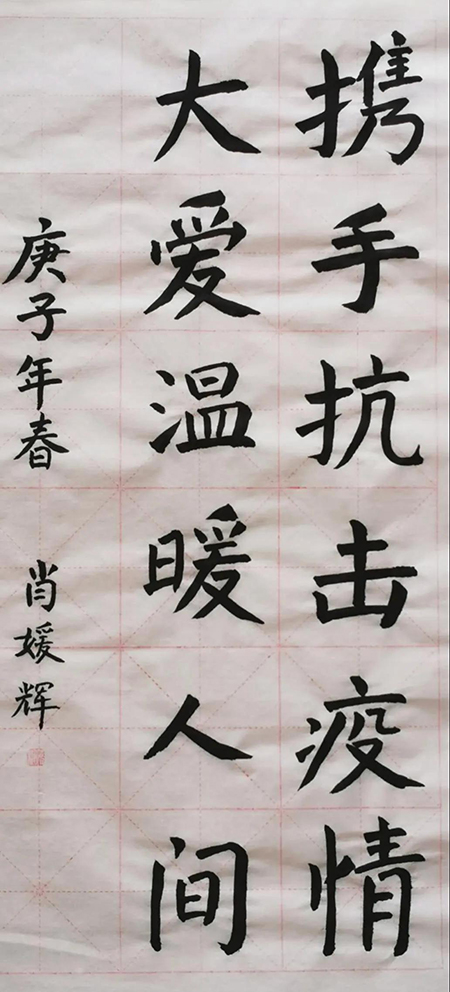 携手抗击疫情
大爱温暖人间
庚子年春 肖媛辉